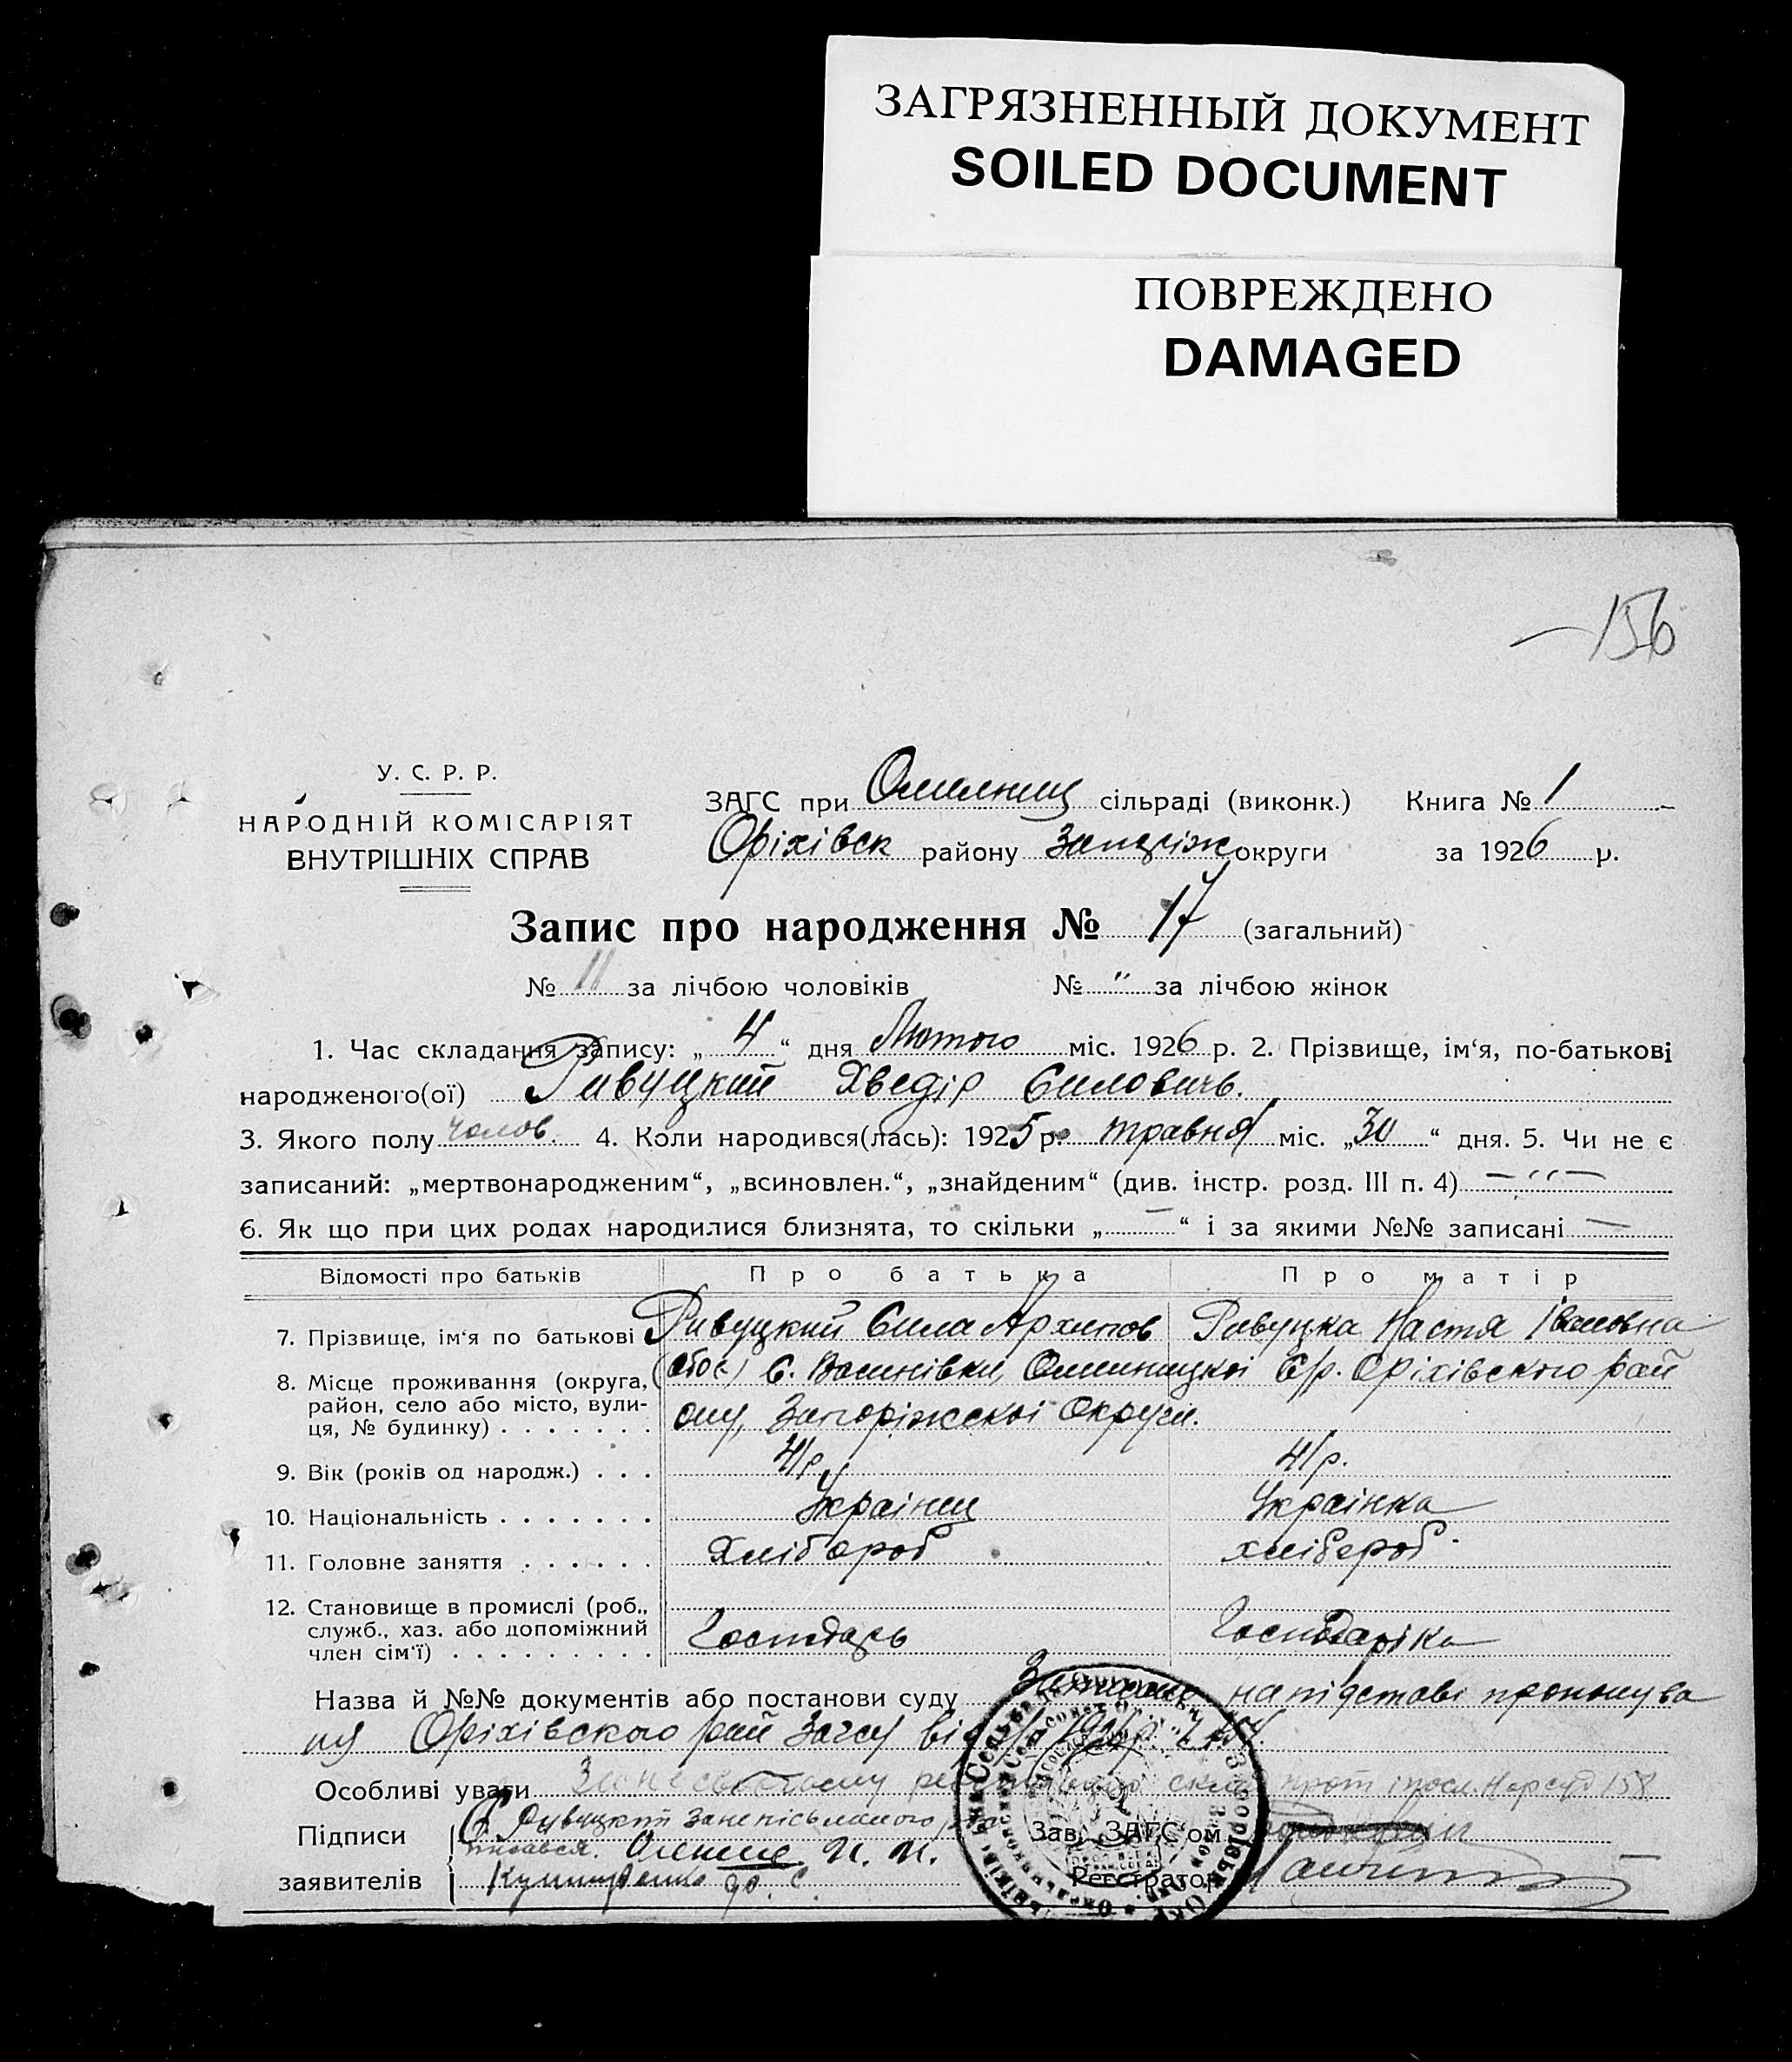 ЗАГРЯЗНЕННЫЙ ДОКУМЕНТ
SOILED DOCUMENT
ПОВРЕЖДЕНО
DAMAGED
—156
У. С. Р. Р.
НАРОДНІЙ КОМІСАРІЯТ
ВНУТРІШНІХ СПРАВ
ЗАГС при сільраді (виконк.) Книга № 1
Оріхівск району Запоріж округи за 1926 р.
Запис про народження № 17 (загальний)
№ 11 за лічбою чоловіків № " за лічбою жінок
1. Час складання запису: „4“ дня Лютого міс. 1926 р. 2. Прізвище, ім‘я, по-батькові
народженого(ої) Ривуцкий Хведір Силовичь.
3. Якого полу чолов. 4. Коли народився(лась): 1925 р. травня міс. „30“ дня. 5. Чи не є
записаний: „мертвонародженим“, „всиновлен.“, „знайденим“ (див. інстр. розд. III п. 4) — " —
6. Як що при цих родах народилися близнята, то скільки „—“ і за якими №№ записані —
Відомості про батьків Про батька Про матір
7. Прізвище, ім‘я по батькові Ривуцкий Сила Архипов Ривуцка Настя Івановна
8. Місце проживання (округа, район, село або місто, вулиця, № будинку) С. С/р. Оріхівского рай
ону, Запоріжскоі Округи.
9. Вік (років од народж.) 41р. 41р.
10. Національність Украінец Украінка
11. Головне заняття Хлібороб хлібороб
12. Становище в промислі (роб., служб., хаз. або допоміжний член сім‘ї) Господарь Господаріка
Назва й №№ документів або постанови суду на підставі пропонува
ня Оріхівского рай Загсу від
Особливі уваги 158
Підписи Ривуцкий
заявителів
Зав. ЗАГС‘ом
Реєстратор